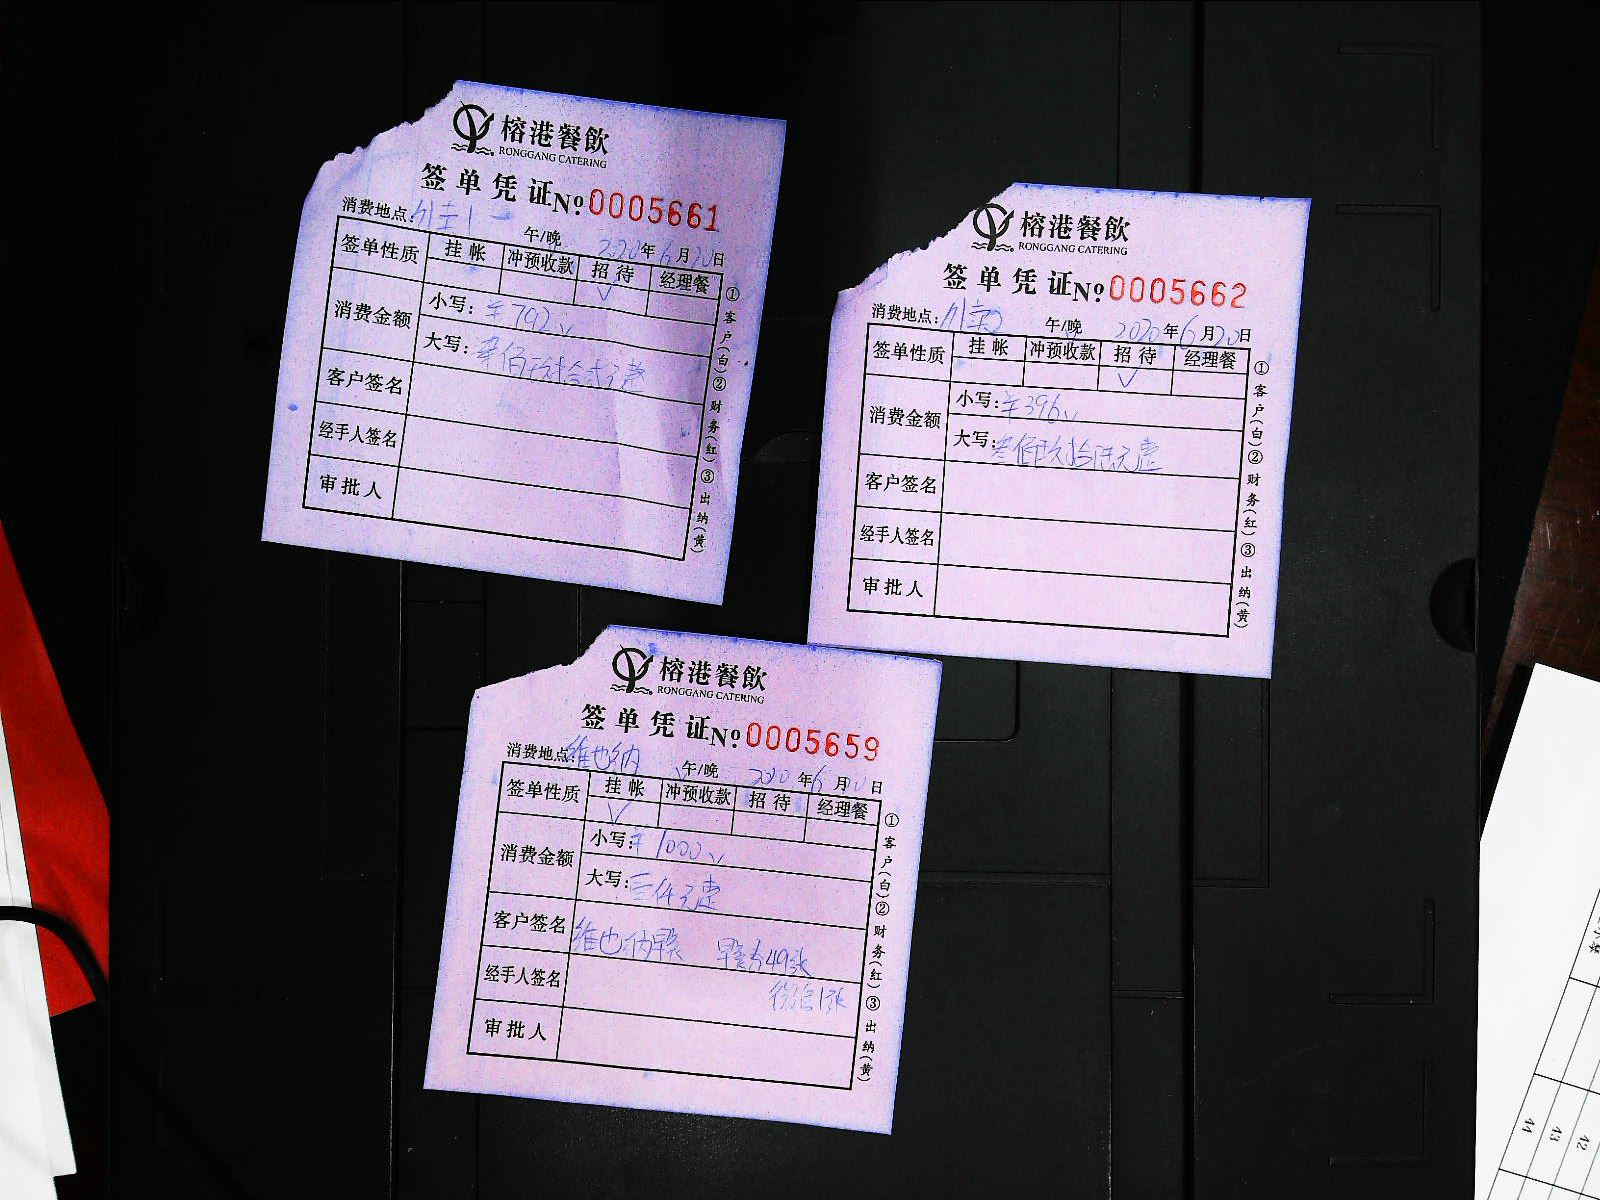 榕港餐飲
RONGGANG CATERING
签单凭证 Nº 0005661
消费地点: 外卖1
午/晚 2020年6月20日
签单性质 挂帐 冲预收款 招待 经理餐
✓
消费金额 小写: ¥792
大写: 柒佰玖拾贰元整
客户签名
经手人签名
审批人
①客户(白)②财务(红)③出纳(黄)
榕港餐飲
RONGGANG CATERING
签单凭证 Nº 0005662
消费地点: 外卖2 午/晚 2020年6月20日
签单性质 挂帐 冲预收款 招待 经理餐
✓
消费金额 小写: ¥396
大写: 叁佰玖拾陆元整
客户签名
经手人签名
审批人
①客户(白)②财务(红)③出纳(黄)
榕港餐飲
RONGGANG CATERING
签单凭证 Nº 0005659
消费地点: 维也纳 午/晚 2020年6月20日
签单性质 挂帐 冲预收款 招待 经理餐
✓
消费金额 小写: ¥1000
大写: 壹仟元整
客户签名 维也纳早餐 早餐券49张
经手人签名 1张
审批人
①客户(白)②财务(红)③出纳(黄)
44
43
42